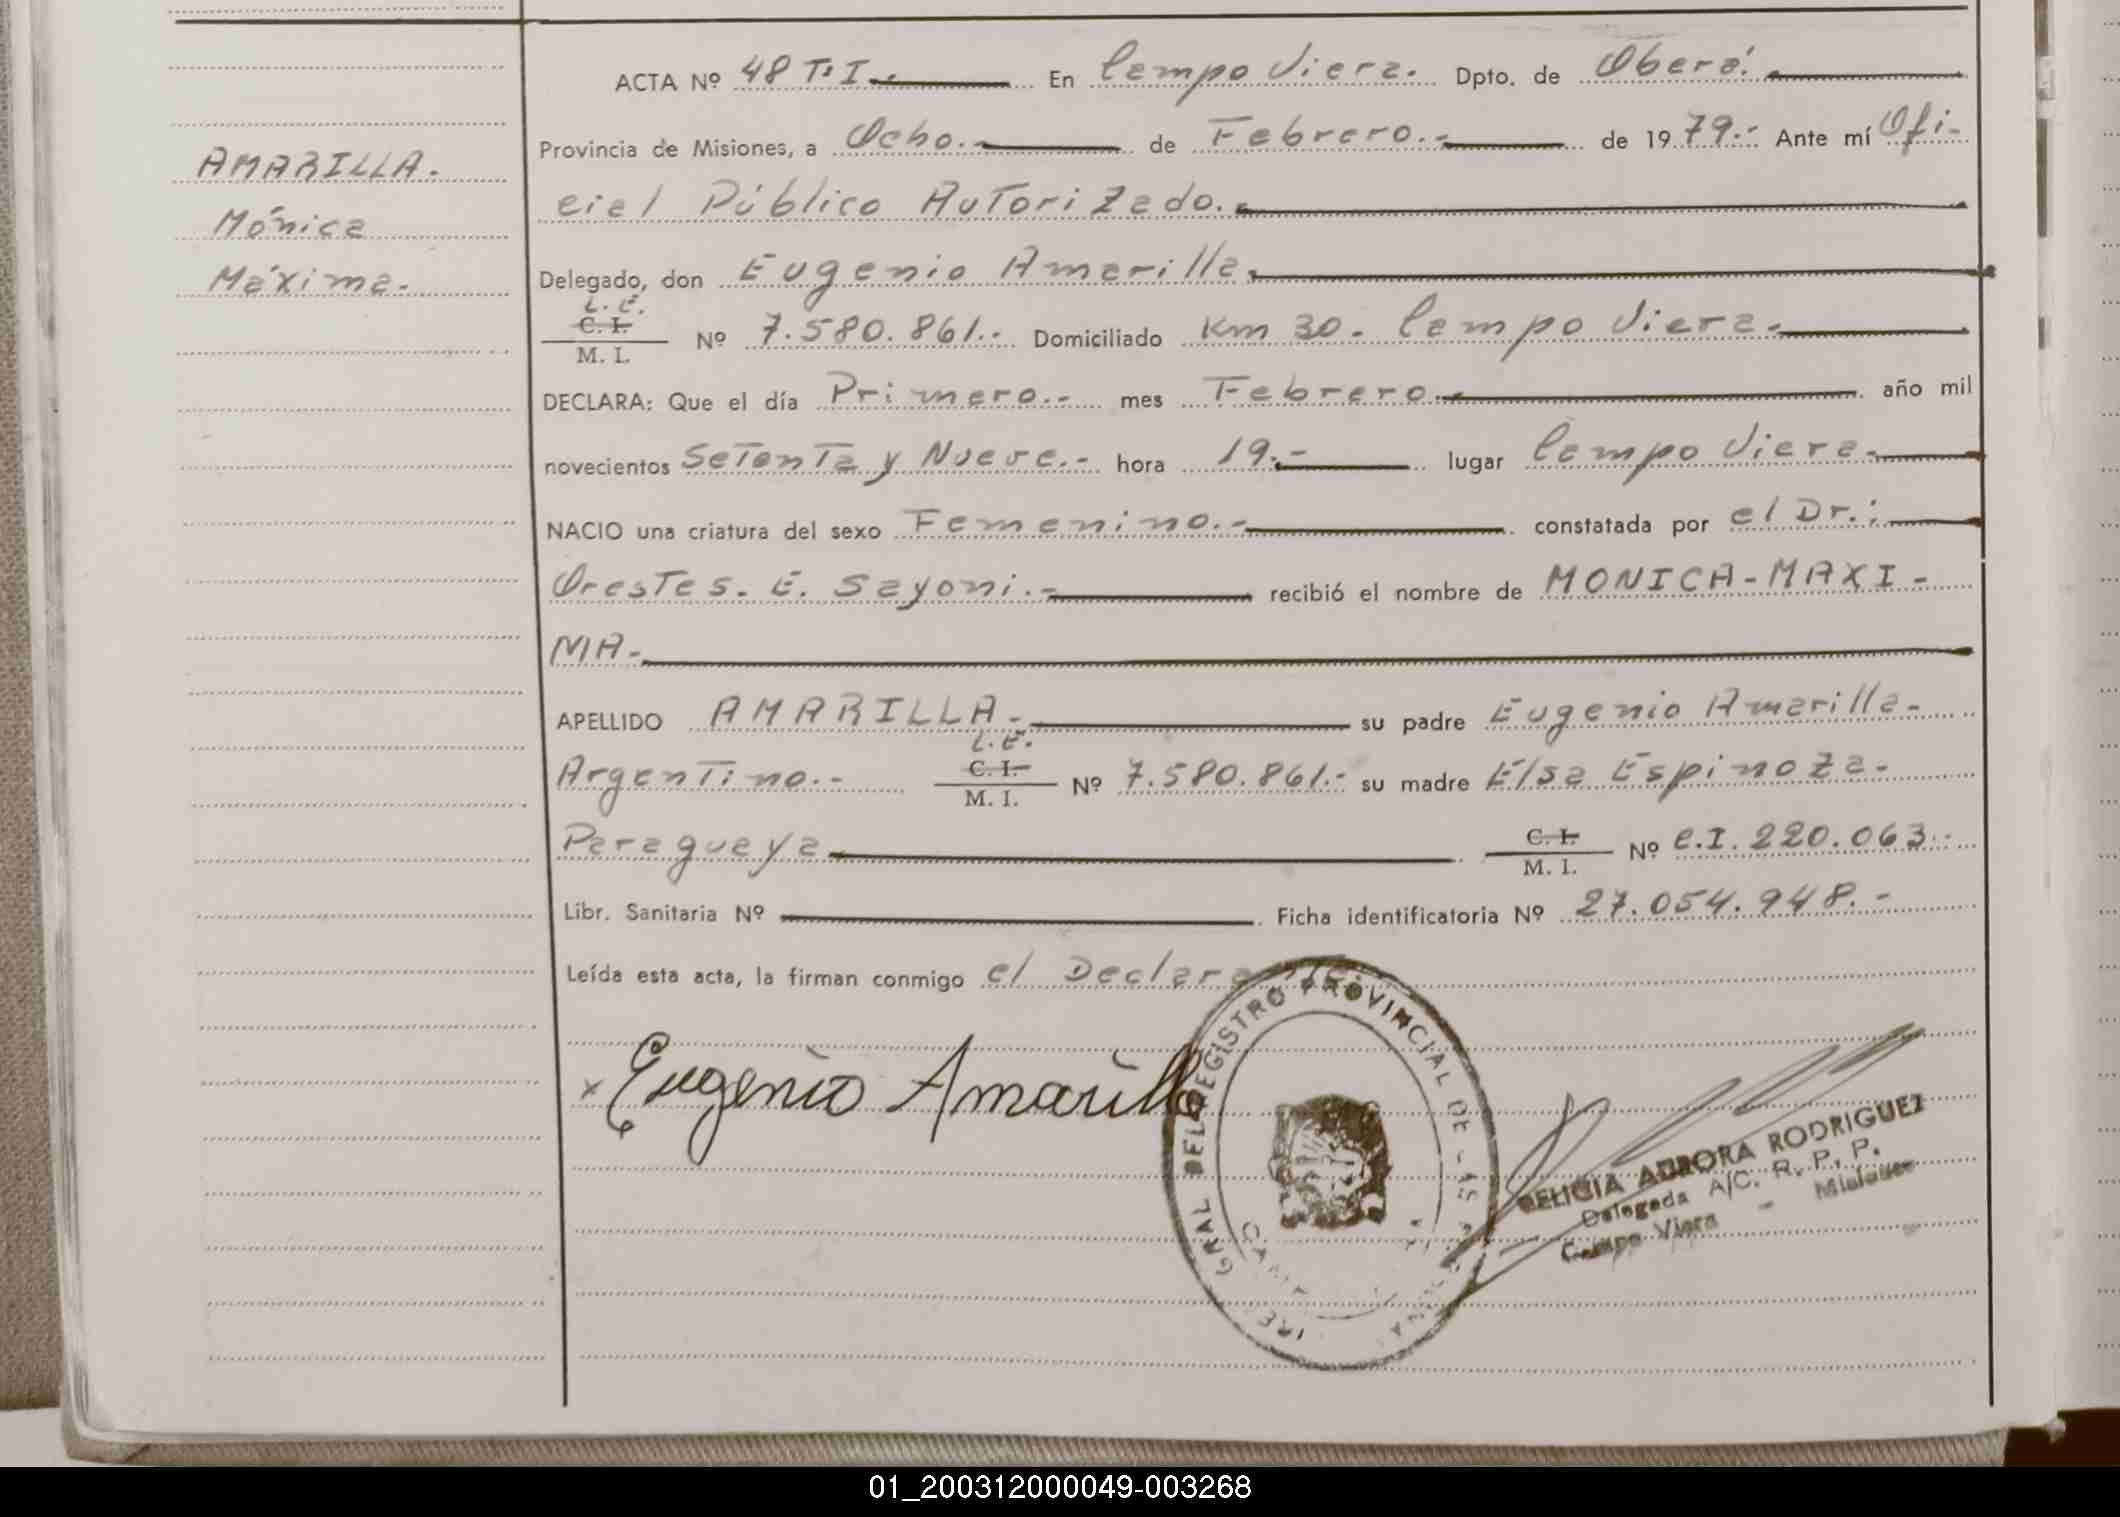 AMARILLA.
Mónica
Máxima.
ACTA Nº 48 T.I. En Campo Viera. Dpto. de Oberá.
Provincia de Misiones, a Ocho.- de Febrero.- de 1979.- Ante mí Ofi-
cial Público Autorizado.
Delegado, don Eugenio Amarilla.
L.E.
C. I.
M. I.
Nº 7.580.861.- Domiciliado Km 30. Campo Viera.
DECLARA: Que el día Primero.- mes Febrero.- año mil
novecientos Setenta y Nueve.- hora 19.- lugar Campo Viera.
NACIO una criatura del sexo Femenino.- constatada por el Dr.:
Orestes. E. Sayoni.- recibió el nombre de MONICA-MAXI-
MA-
APELLIDO AMARILLA.- su padre Eugenio Amarilla-
L.E.
Argentino.- C. I. M. I. Nº 7.580.861.- su madre Elsa Espinoza.
Paraguaya C. I. M. I. Nº C.I. 220.063.-
Libr. Sanitaria Nº Ficha identificatoria Nº 27.054.948.-
Leída esta acta, la firman conmigo el Declarante.
x Eugenio Amarilla
GRAL DEL REGISTRO PROVINCIAL DE LAS
DELICIA AURORA RODRIGUEZ
Delegada A/C. R. P. P.
Campo Viera - Misiones
01_200312000049-003268